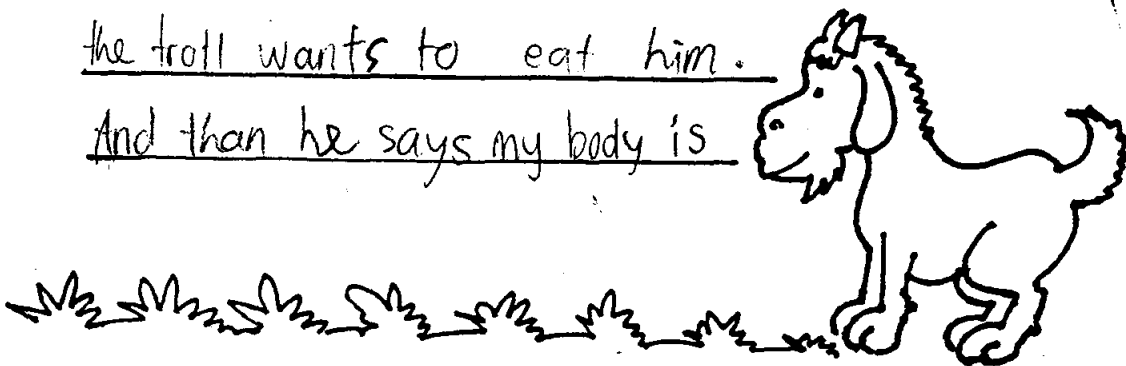 the troll wants to eat him.
And than he says my body is